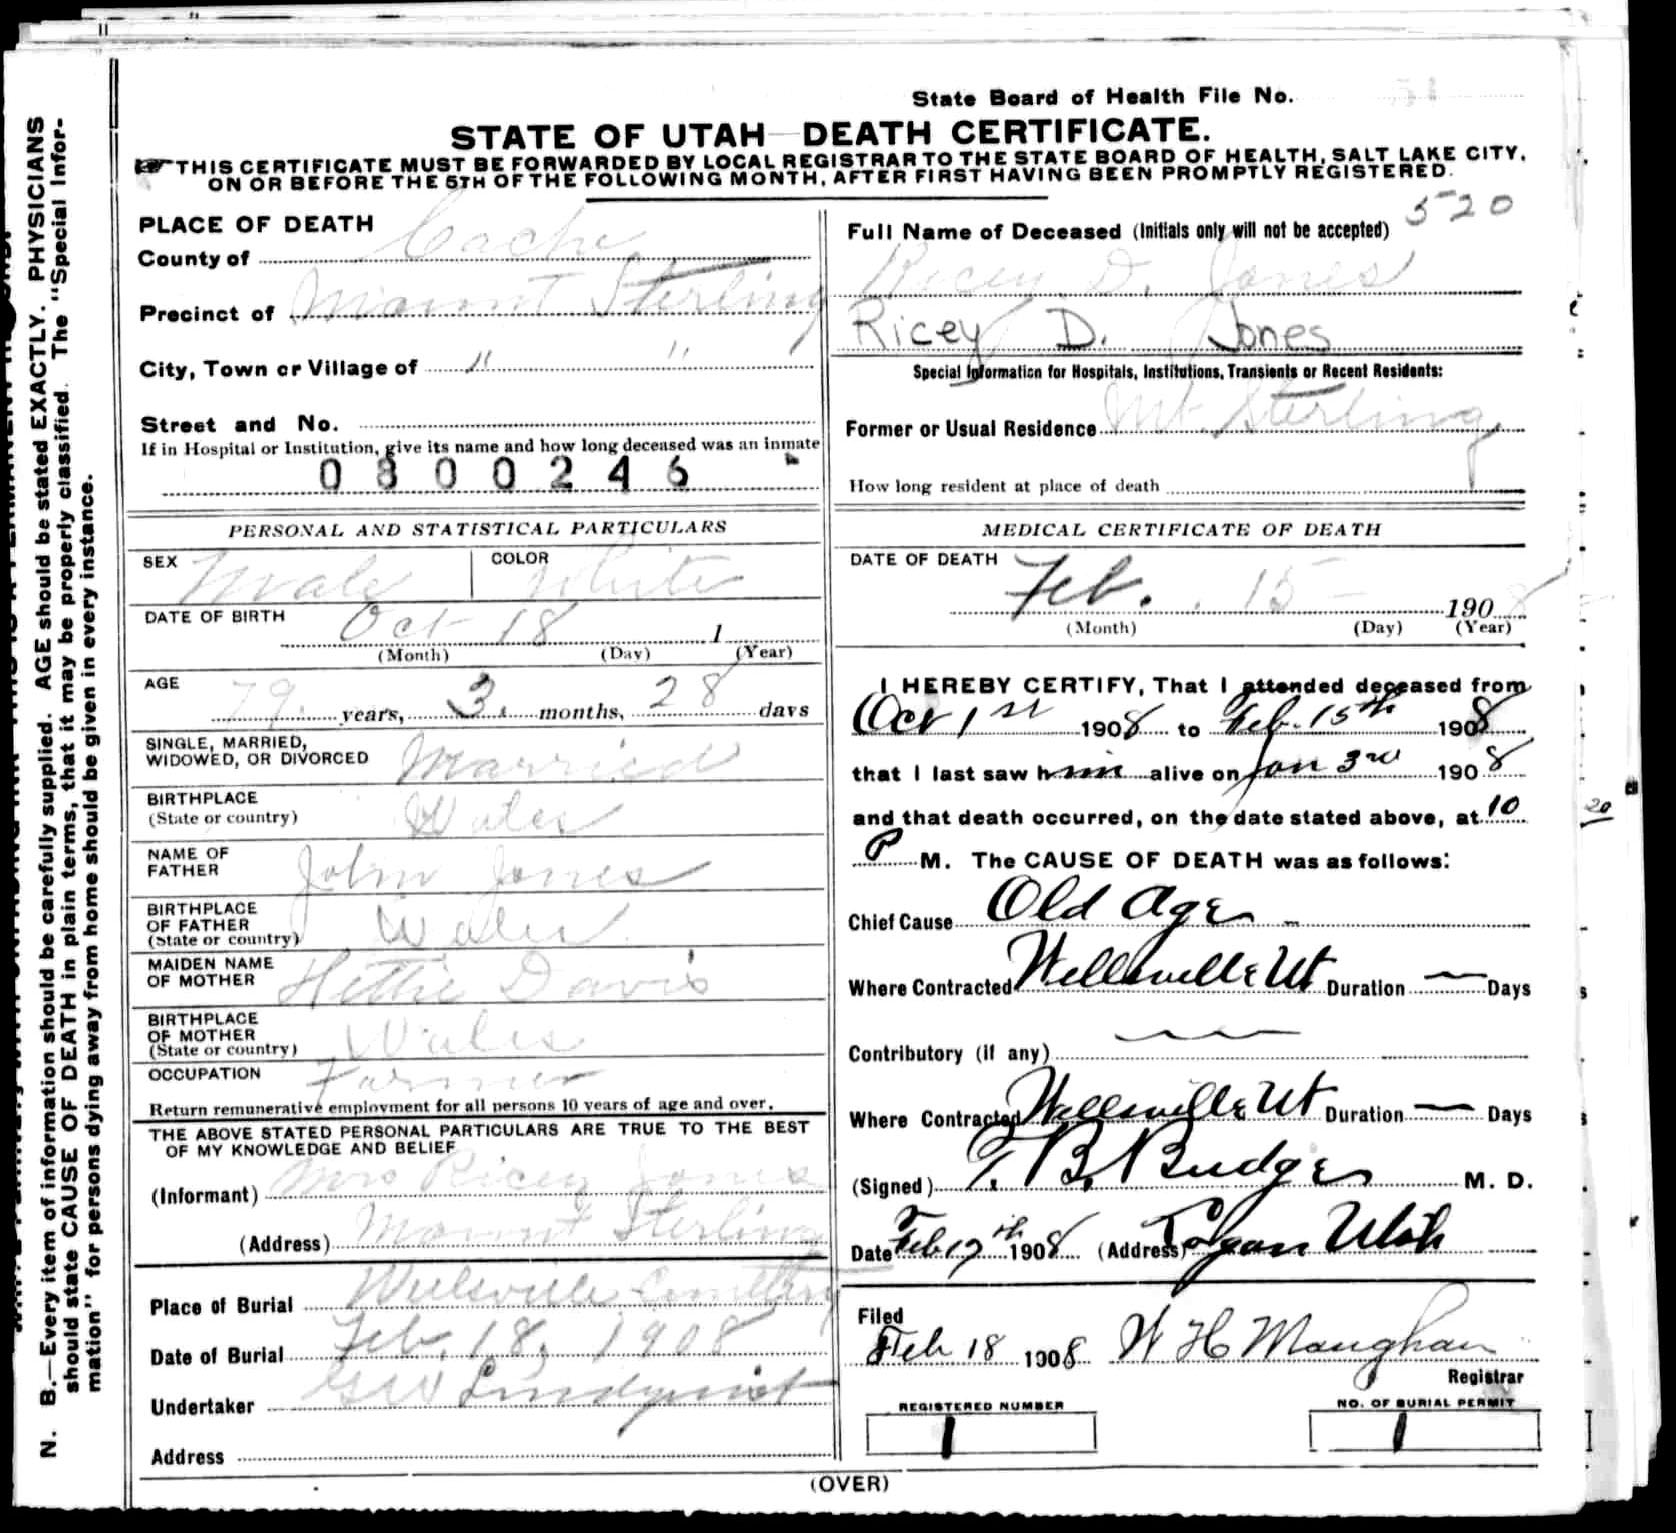 State Board of Health File No. 51
STATE OF UTAH—DEATH CERTIFICATE.
THIS CERTIFICATE MUST BE FORWARDED BY LOCAL REGISTRAR TO THE STATE BOARD OF HEALTH, SALT LAKE CITY,
ON OR BEFORE THE 5TH OF THE FOLLOWING MONTH, AFTER FIRST HAVING BEEN PROMPTLY REGISTERED.
N. B.—Every item of information should be carefully supplied. AGE should be stated EXACTLY. PHYSICIANS
should state CAUSE OF DEATH in plain terms, that it may be properly classified. The "Special Infor-
mation" for persons dying away from home should be given in every instance.
PLACE OF DEATH
County of Cache
Precinct of Mount Sterling
City, Town or Village of " "
Street and No.
If in Hospital or Institution, give its name and how long deceased was an inmate
0800246
PERSONAL AND STATISTICAL PARTICULARS
SEX Male COLOR White
DATE OF BIRTH Oct 18 1
(Month) (Day) (Year)
AGE 79 years, 3 months, 28 days
SINGLE, MARRIED,
WIDOWED, OR DIVORCED Married
BIRTHPLACE
(State or country) Wales
NAME OF
FATHER John Jones
BIRTHPLACE
OF FATHER
(State or country) Wales
MAIDEN NAME
OF MOTHER Hettie Davis
BIRTHPLACE
OF MOTHER
(State or country) Wales
OCCUPATION Farmer
Return remunerative employment for all persons 10 years of age and over.
THE ABOVE STATED PERSONAL PARTICULARS ARE TRUE TO THE BEST
OF MY KNOWLEDGE AND BELIEF
(Informant) Mrs Ricey Jones
(Address) Mount Sterling
Place of Burial Wellsville Cemetery
Date of Burial Feb. 18, 1908
Undertaker GW Lindquist
Address
520
Full Name of Deceased (Initials only will not be accepted)
Ricey D. Jones
Ricey D. Jones
Special Information for Hospitals, Institutions, Transients or Recent Residents:
Former or Usual Residence Mt. Sterling
How long resident at place of death
MEDICAL CERTIFICATE OF DEATH
DATE OF DEATH
Feb. 15 — 1908
(Month) (Day) (Year)
I HEREBY CERTIFY, That I attended deceased from
Oct 1st 1908 to Feb. 15th 1908
that I last saw him alive on Jan 3rd 1908
and that death occurred, on the date stated above, at 10
P M. The CAUSE OF DEATH was as follows:
20
Chief Cause Old Age —
Where Contracted Wellsville Ut Duration — Days
Contributory (if any)
Where Contracted Wellsville Ut Duration — Days
(Signed) T. B. Budge M. D.
Date Feb 17th 1908 (Address) Logan Utah
Filed
Feb 18 1908 W H Maughan
Registrar
REGISTERED NUMBER NO. OF BURIAL PERMIT
1 1
(OVER)